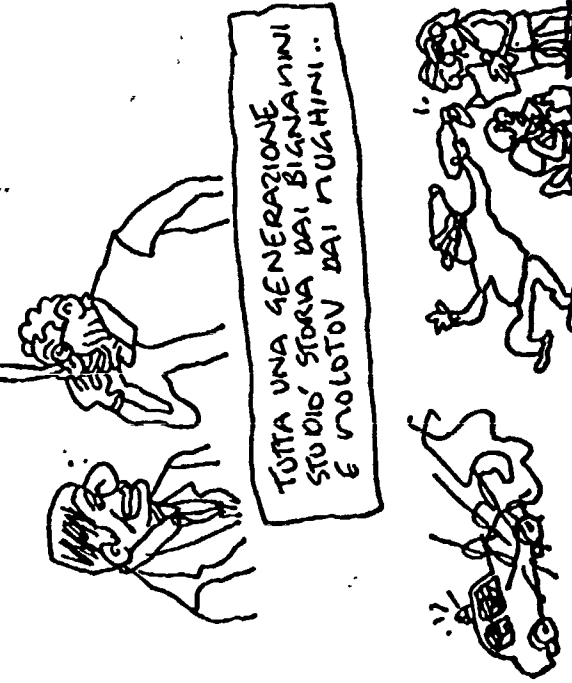 TUTTA UNA GENERAZIONE
STUDIO' STORIA DAI BIGNAMINI
E MOLOTOV DAI MUGHINI..